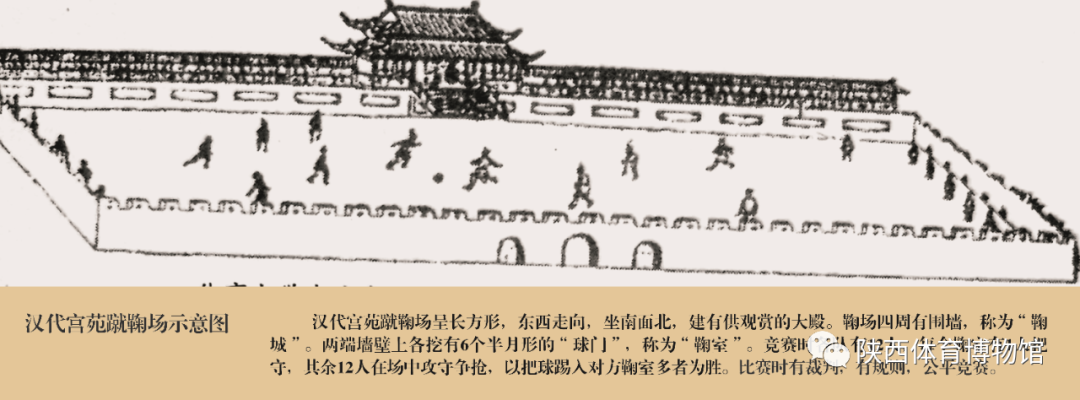 汉代宫苑蹴鞠场示意图
汉代宫苑蹴鞠场呈长方形，东西走向，坐南面北，建有供观赏的大殿。鞠场四周有围墙，称为“鞠
城”。两端墙壁上各挖有6个半月形的“球门”，称为“鞠室”。竞赛时
守，其余12人在场中攻守争抢，以把球踢入对方鞠室多者为胜。比赛时有裁判，有规则，公平竞赛。
陕西体育博物馆